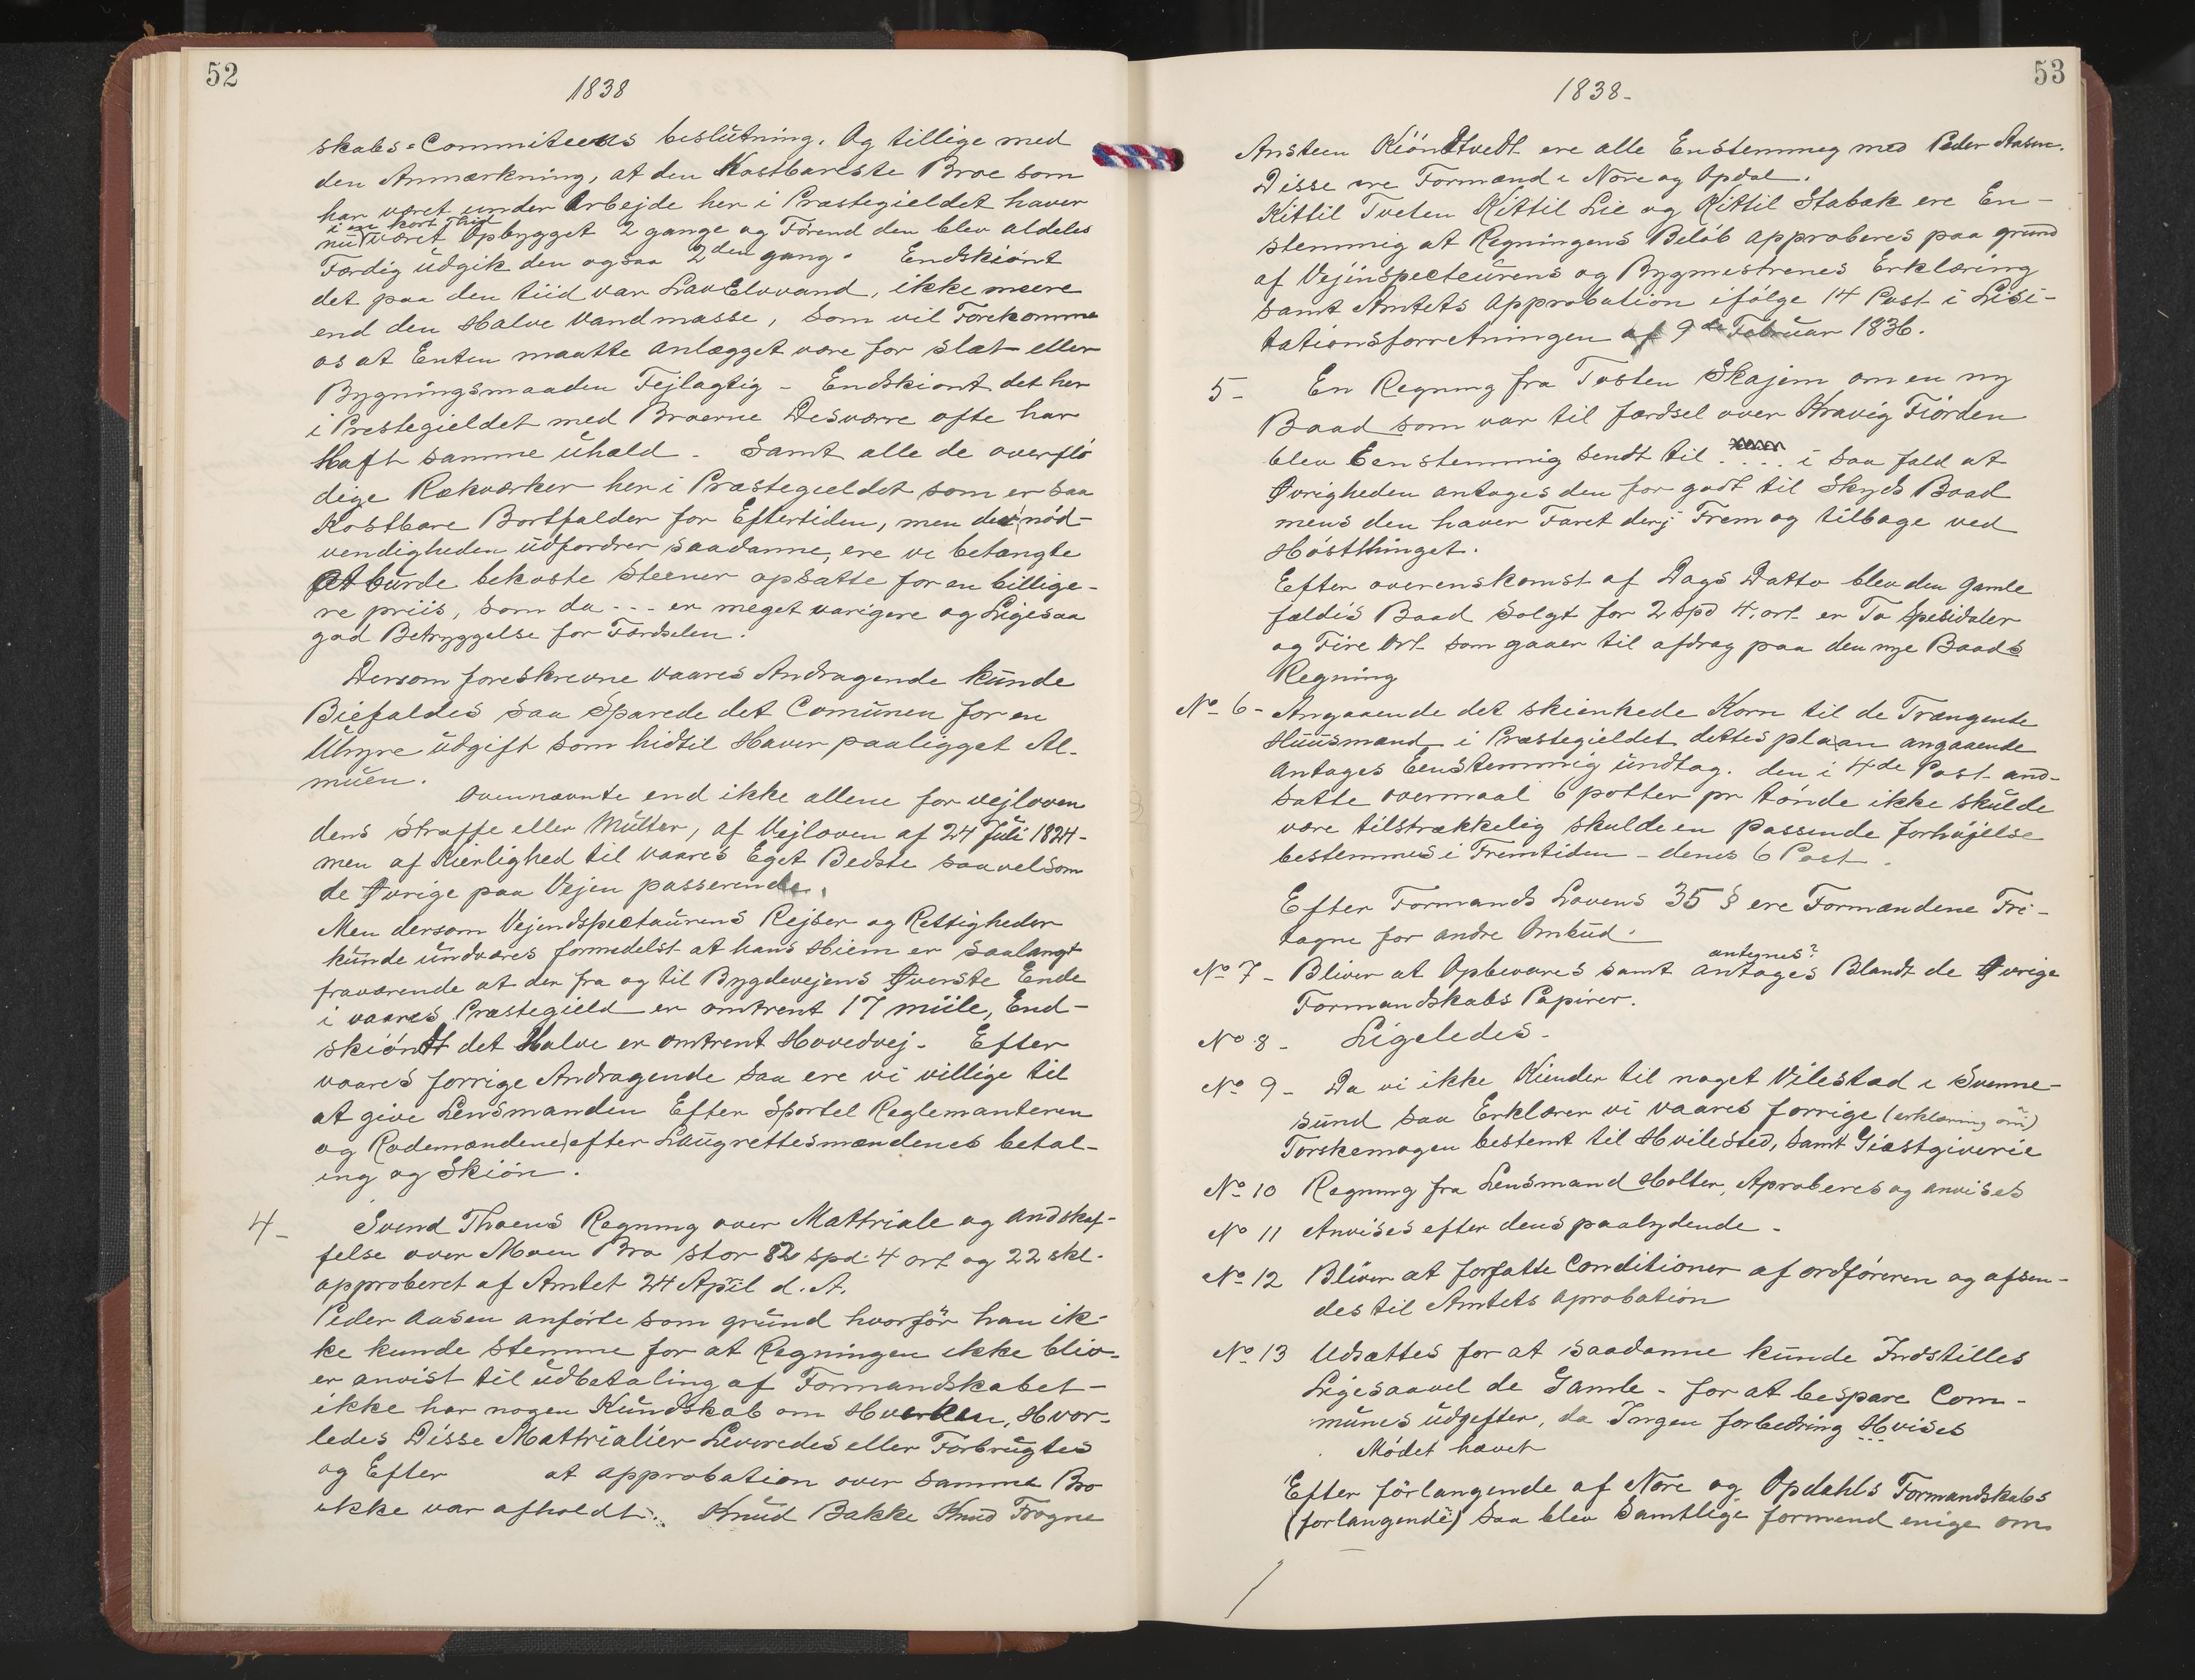 52
1838
skabs=Commiteens beslutning. Og tillige med
den Anmærkning, at den Kostbareste Broe som
har været under Arbejde her i Præstegieldet haver
i en kort Thid
nu været Opbygget 2 gange og Förend den blev aldeles
Færdig udgik den ogsaa 2den gang. Endskiönt
det paa den tiid var Lav Elvvand, ikke meere
end den Halve Vandmasse, som vil Forekomme
os at Enten maatte anlægget være for slæt eller
Bygningsmaaden Fejlagtig - Endskiönt det her
i Prestegieldet med Broerne Desværre ofte har
Haft samme uhæld. Samt alle de overflö
dige Rækværker her i Præstegieldet som er saa
Kostbare Bortfalder for Eftertiden, men der nöd-
vendigheden udfordrer saadanne, ere vi betængte
At burde bekoste Steener opsatte for en billige-
re priis, som da - - - er meget varigere og Ligesaa
god Betryggelse for Færdselen.
Dersom foreskrevne vaares Andragende kunde
Biefaldes saa Sparede det Comunen for en
Uhyre udgift som hidtil Haver paaligget Al-
muen.
Ovennævnte end ikke allene for vejloven
dens Straffe eller Mulkter, af Vejloven af 24 Juli 1824-
men af Kierlighed til vaares Eget Bedste saavelsom
de Øvrige paa Vejen passerende.
Men dersom Vejendspectaurens Rejser og Rettigheder
kunde undværes formedelst at hans Hiem er saalangt
fraværende at der fra og til Bygdevejens Øverste Ende
i vaares Præstegield er omtrent 17 miile, End-
skiöndt det Halve er omtrent Hovedvej. Efter
vaares forrige Andragende saa ere vi villige til
at give Lensmanden Efter Sportel Reglemanteren
og Rodemændene efter Laugrettesmændenes betal-
ing og Skiön.
4- Svend Thoens Regning over Mattriale og andskaf-
felse over Moen Bro stor 82 spd. 4 ort og 22 skl.
approberet af Amtet 24 April d. A.
Peder Aasen anförte som grund hvorför han ik-
ke kunde stemme for at Regningen ikke bliv-
er anvist til udbetaling af Formandskabet-
ikke har nogen Kundskab om Hverken, Hvor-
ledes Disse Mattrialier Leveredes eller Forbrugtes
og Efter at approbation over Samme Bro
ikke var afholdt. Knud Bakke Knud Frogne
53
1838-
Ansteen Kiöndtvedt ere alle Enstemmeg med Peder Aasen.
Disse ere Formænd i Nore og Opdal.
Kittil Tveten Kittil Lie og Kittil Stabæk ere En-
stemmig at Regningens Belöb approberes paa grund
af Vejinspecteurens og Bygmestrenes Erklæring
samt Amtets Approbation ifölge 14 Post i Lisi-
tationsforretningen af 9de Februar 1836.
5- En Regning fra Tosten Skajem om en ny
Baad som var til færdsel over Kravig Fiörden
blev Eenstemmig sendt til . . . . i saa fald at
Øvrigheden antages den for godt til Skyds Baad
mens den haver Faret derj Frem og tilbage ved
Höstthinget.
Efter overenskomst af Dags Datto blev den Gamle
fældis Baad Solgt for 2 spd 4. ort er To Spesidaler
og Fire Ort som gaaer til afdrag paa den nye Baads
Regning
No 6- Angaaende det skienkede Korn til de Trængende
Huusmænd i Præstegieldet dettes plaan angaaende
Antages Eenstemmig undtag. den i 4de Post and-
satte overmaal 6 potter pr tönde ikke skulde
være tilstrækkelig skulde en Passende forhöjelse
bestemmes i Fremtiden - denes 6 Post.
Efter Formands Lovens 35 § ere Formændene Fri-
tagne for andre Ombud.
antegnes?
No 7- Bliver at Opbevares samt antages Blandt de Øvrige
Formandskabs Papirer.
No 8- Ligeledes-
No 9- Da vi ikke Kiender til noget Vilestad i Svenne-
sund saa Erklærer vi vaares forrige (erklæring om)
Torskemogen bestemt til Hvilested, samt Giæstgiverie
No 10 Regning fra Lensmand Holter, Aproberes og anvises
No 11 Anvises efter dens paalydende -
No 12 Bliver at forfatte Conditioner af ordföreren og afsen-
des til Amtets aprobation
No 13 Udsættes for at saadanne kunde Indstilles
Ligesaavel de Gamle - for at bespare Com-
munes udgifter, da Ingen forbedring Hvises
Mödet hævet
Efter förlangende af Nore og Opdahls Formandskabs
(forlangende) saa blev Samtlige formend enige om